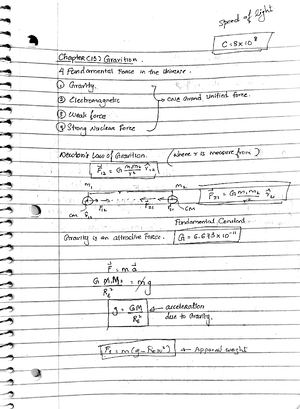 Speed of light
C = 3 x 10^8
Chapter (13) Gravition.
4 Fundamental Force in the Universe.
① Gravity.
② Electromagnetic
③ Weak force
④ Strong Nuclear Force
→ one Grand Unified force.
Newton's Law of Gravition.
F⃗12 = G m1m2/r² r̂12
(where r is measure from)
m1 m2
F⃗21 = G m1 m2/r² r̂21
F12 F21
CM CM
Fundamental Constant.
Gravity is an attractive Force. G = 6.673 x 10^-11
F⃗ = m a⃗
G M M/Re² = m g
g = GM/Re² ← acceleration due to Gravity.
← Apparent weight